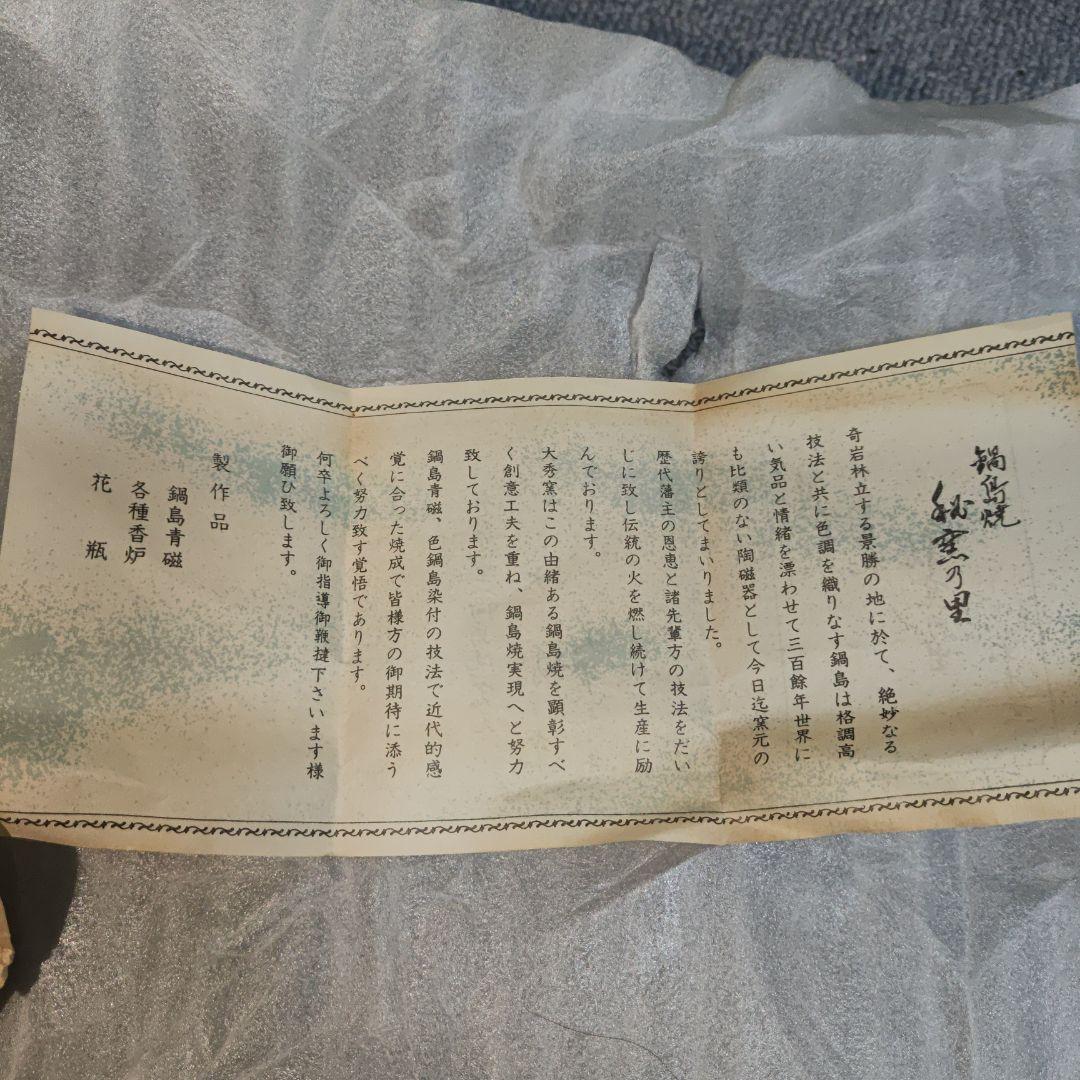 鍋島焼
秘窯の里
奇岩林立する景勝の地に於て、絶妙なる
技法と共に色調を織りなす鍋島は格調高
い気品と情緒を漂わせて三百餘年世界に
も比類のない陶磁器として今日迄窯元の
誇りとしてまいりました。
歴代藩主の恩恵と諸先輩方の技法をだい
じに致し伝統の火を燃し続けて生産に励
んでおります。
大秀窯はこの由緒ある鍋島焼を顕彰すべ
く創意工夫を重ね、鍋島焼実現へと努力
致しております。
鍋島青磁、色鍋島染付の技法で近代的感
覚に合った焼成で皆様方の御期待に添う
べく努力致す覚悟であります。
何卒よろしく御指導御鞭撻下さいます様
御願ひ致します。
製作品
鍋島青磁
各種香炉
花瓶